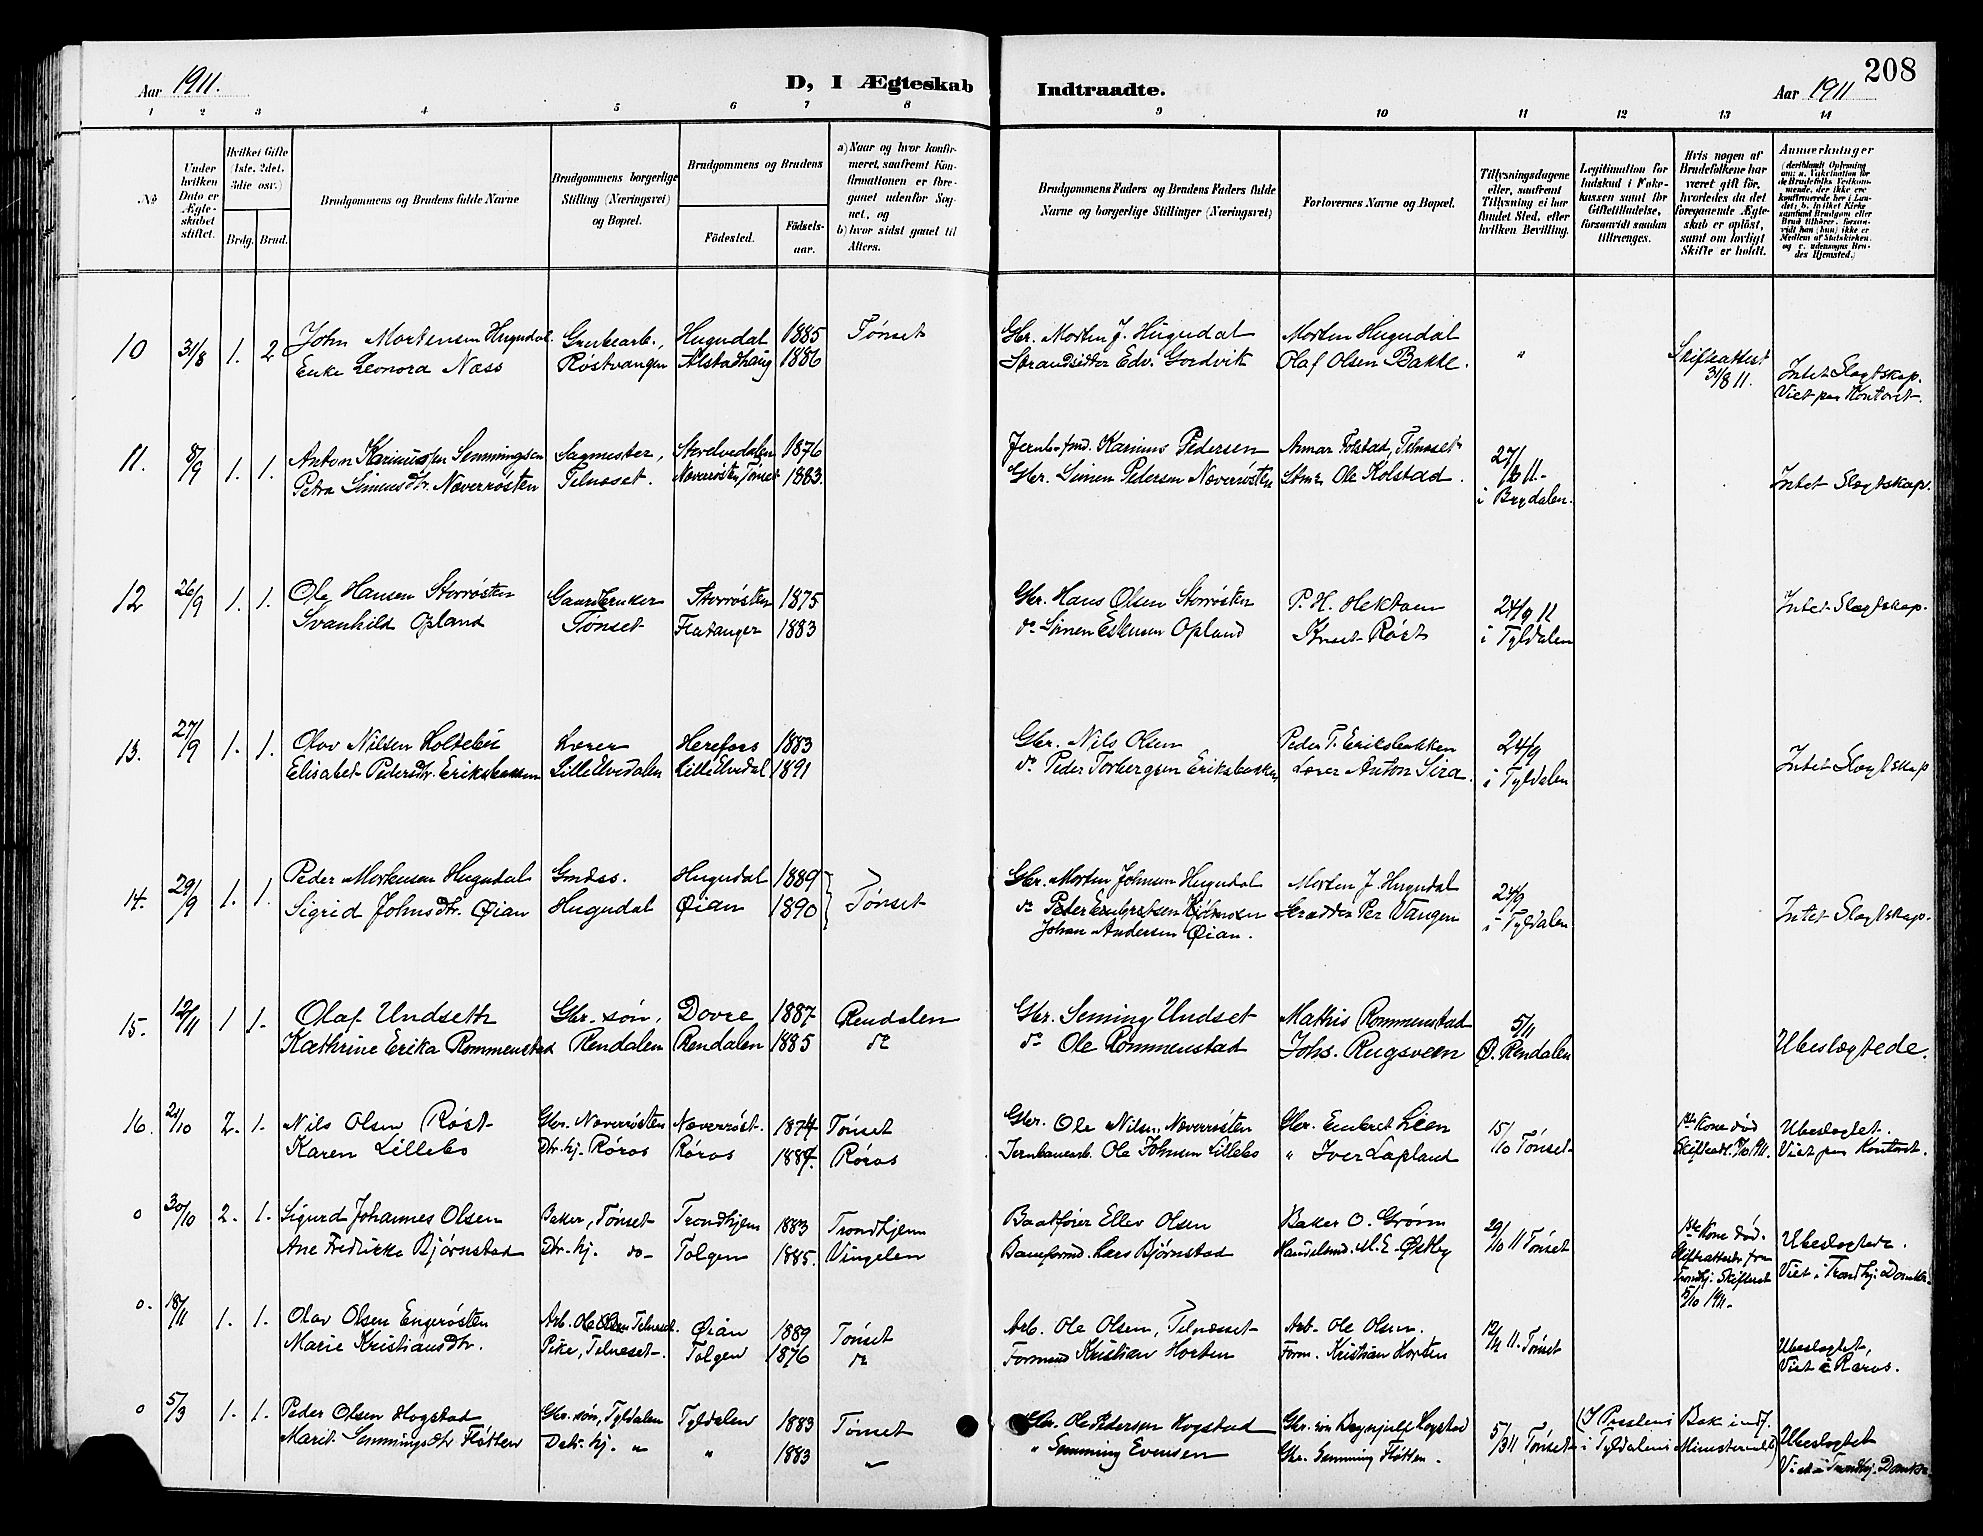 208
Aar 1911.
D, I Ægteskab
Indtraadte.
Aar 1911
1 2 3 4 5 6 7 8 9 10 11 12 13 14
No
Under hvilken Dato er Ægteskabet stiftet.
Hvilket Gifte (1ste, 2det, 3die osv.)
Brdg. Brud.
Brudgommens og Brudens fulde Navne
Brudgommens borgerlige Stilling (Næringsvei) og Bopæl.
Brudgommens og Brudens
Fødested.
Fødselsaar.
a) Naar og hvor konfirmeret, saafremt Konfirmationen er foregaaet udenfor Sognet, og
b) hvor sidst gaaet til Alters.
Brudgommens Faders og Brudens Faders fulde Navne og borgerlige Stillinger (Næringsvei)
Forlovernes Navne og Bopæl.
Tillysningsdagene eller, saafremt Tillysning ei har fundet Sted, efter hvilken Bevilling.
Legitimation for Indskud i Enkekassen samt for Giftetilladelse, forsaavidt saadan tiltrænges.
Hvis nogen af Brudefolkene har været gift før, hvorledes da det foregaaende Ægteskab er opløst, samt om lovligt Skifte er holdt.
Anmærkninger
10 31/8 1. 2 John Mortensen Hugudal Grubearb., Hugudal 1885 Tønset Gbr. Morten J. Hugudal Morten Hugudal " Skifteattest
Enke Leonora Næss Røstvangen Alstadhaug 1886 Strandsidder Edv. Gordvik Olaf Olsen Bakke. 31/8 11. Intet Slægtskap.
Viet paa Kontoret.
11. 8/9 1. 1. Anton Karinussen Semmingsen Sagmester, Storelvedalen 1876 Jernb.fmd. Karinus Pedersen Anmar Tolstad, Telneset 27/8 11.
Petra Simensdtr. Næverrøsten Telneset. Næverrøsten, Tønset 1883. Gbr. Simen Pedersen Næverrøsten Ole Kolstad. i Brydalen. Intet Slægtskap.
12 26/9 1. 1. Ole Hansen Storrøsten Gaardbruker Storrøsten 1875 Gbr. Hans Olsen Storrøsten P. H. Hektoen 24/9 11 Intet Slægtskap.
Svanhild Opland Tønset Flatanger 1883 do Simen Opland Knut Røst i Tyldalen
13. 27/9 1. 1. Olav Nilsen Holtebei Lærer Herefoss 1883 Gbr. Nils Olsen Peder T. Eriksbakken 24/9
Elisabet Pedersdtr. Eriksbakken Lille Elvedalen Lille Elvedal 1891 do Peder Torbergsen Eriksbakken Lærer Anton Sira. i Tyldalen Intet Slægtskap
14. 29/9 1. 1. Peder Mortensen Hugudal Hugudal 1889 Tønset Gbr. Morten Johnsen Hugudal Morten J. Hugudal 24/9
Sigrid Johnsdtr. Øian Hugudal Øian 1890 do Peter Embretsen Skrædder Per Vangen i Tyldalen Intet Slægtskap.
Johan Andersen Øian.
15. 12/11 1 1. Olaf Undseth Gbr. søn, Dovre 1887 Rendalen Gbr. Seming Undset Mathis Rommenstad 5/11
Kathrine Erika Rommenstad Rendalen Rendalen 1885 do do Ole Rommenstad Johs. Rugsveen Ø. Rendalen Ubeslægtede.
16. 21/10 2. 1. Nils Olsen Røst Gbr. Næverrøsten Næverrøst. 1874 Tønset Gbr. Ole Nilsen Næverrøsten Gbr. Embret Lien 15/10 Tønset 1ste Kone død Ubeslægtet.
Karen Lillebo Dtr. hj. Røros Røros 1884. Røros Jernbanearb. Ole Johnsen Lillebo " Iver Lapland Viet paa Kontoret.
0 30/10 2. 1. Sigurd Johannes Olsen Baker, Tønset Trondhjem 1883 Trondhjem Baatfører Ellev Olsen Baker O. Grønn 29/10 11 Tønset 1ste Kone død. Ubeslægtede.
Ane Fredrikke Bjørnstad Dtr. hj. do Tolgen 1885. Vingelen Baneformd. Lars Bjørnstad Handelsmd. M. E. Østby Skifteattest fra Trondhj. Skifteret 5/10 1911. Viet i Trondhj. Domk.
0. 18/11 1. 1. Olav Olsen Engerøsten Arb. Ole Olsen Telneset. Øian 1889 Tønset Arb. Ole Olsen, Telnesset Arb. Ole Olsen. 12/11 11. Tønset
Marie Kristiansdtr. Pike, Telneset. Tolgen 1876 do Formand Kristian Horten Form. Kristian Horten Ubeslægtet,
Viet i Røros.
0 5/3 1. 1. Peder Olsen Hogstad Gbr. søn, Tyldalen Tyldalen 1883 Tønset Gbr. Ole Pedersen Hogstad Gbr. søn Hogstad 5/3 11 Tønset (I Protokol i Tyldalens Ubeslægtet
Marit Semmingsdtr Fløtten Datr. hj. " " 1883 " " Semming Evensen Gbr. Semming Fløtten. Viet i Trondhj. Domk.